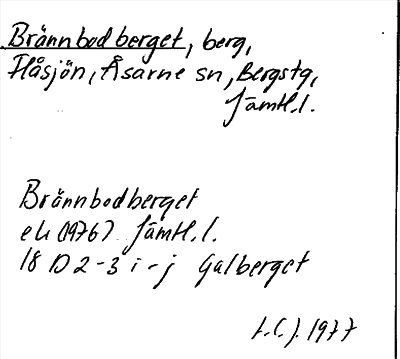 Brännbodberget, berg,
Håsjön, Åsarne sn, Bergstg,
Jämtl.l.
Brännbodberget
ek (1976) Jämtl.l.
18 D 2-3 i-j Galberget
1977